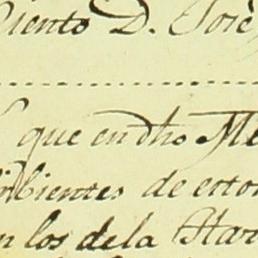 iento D. Josè
que en dho Me
bientes de estos
n los de la Har